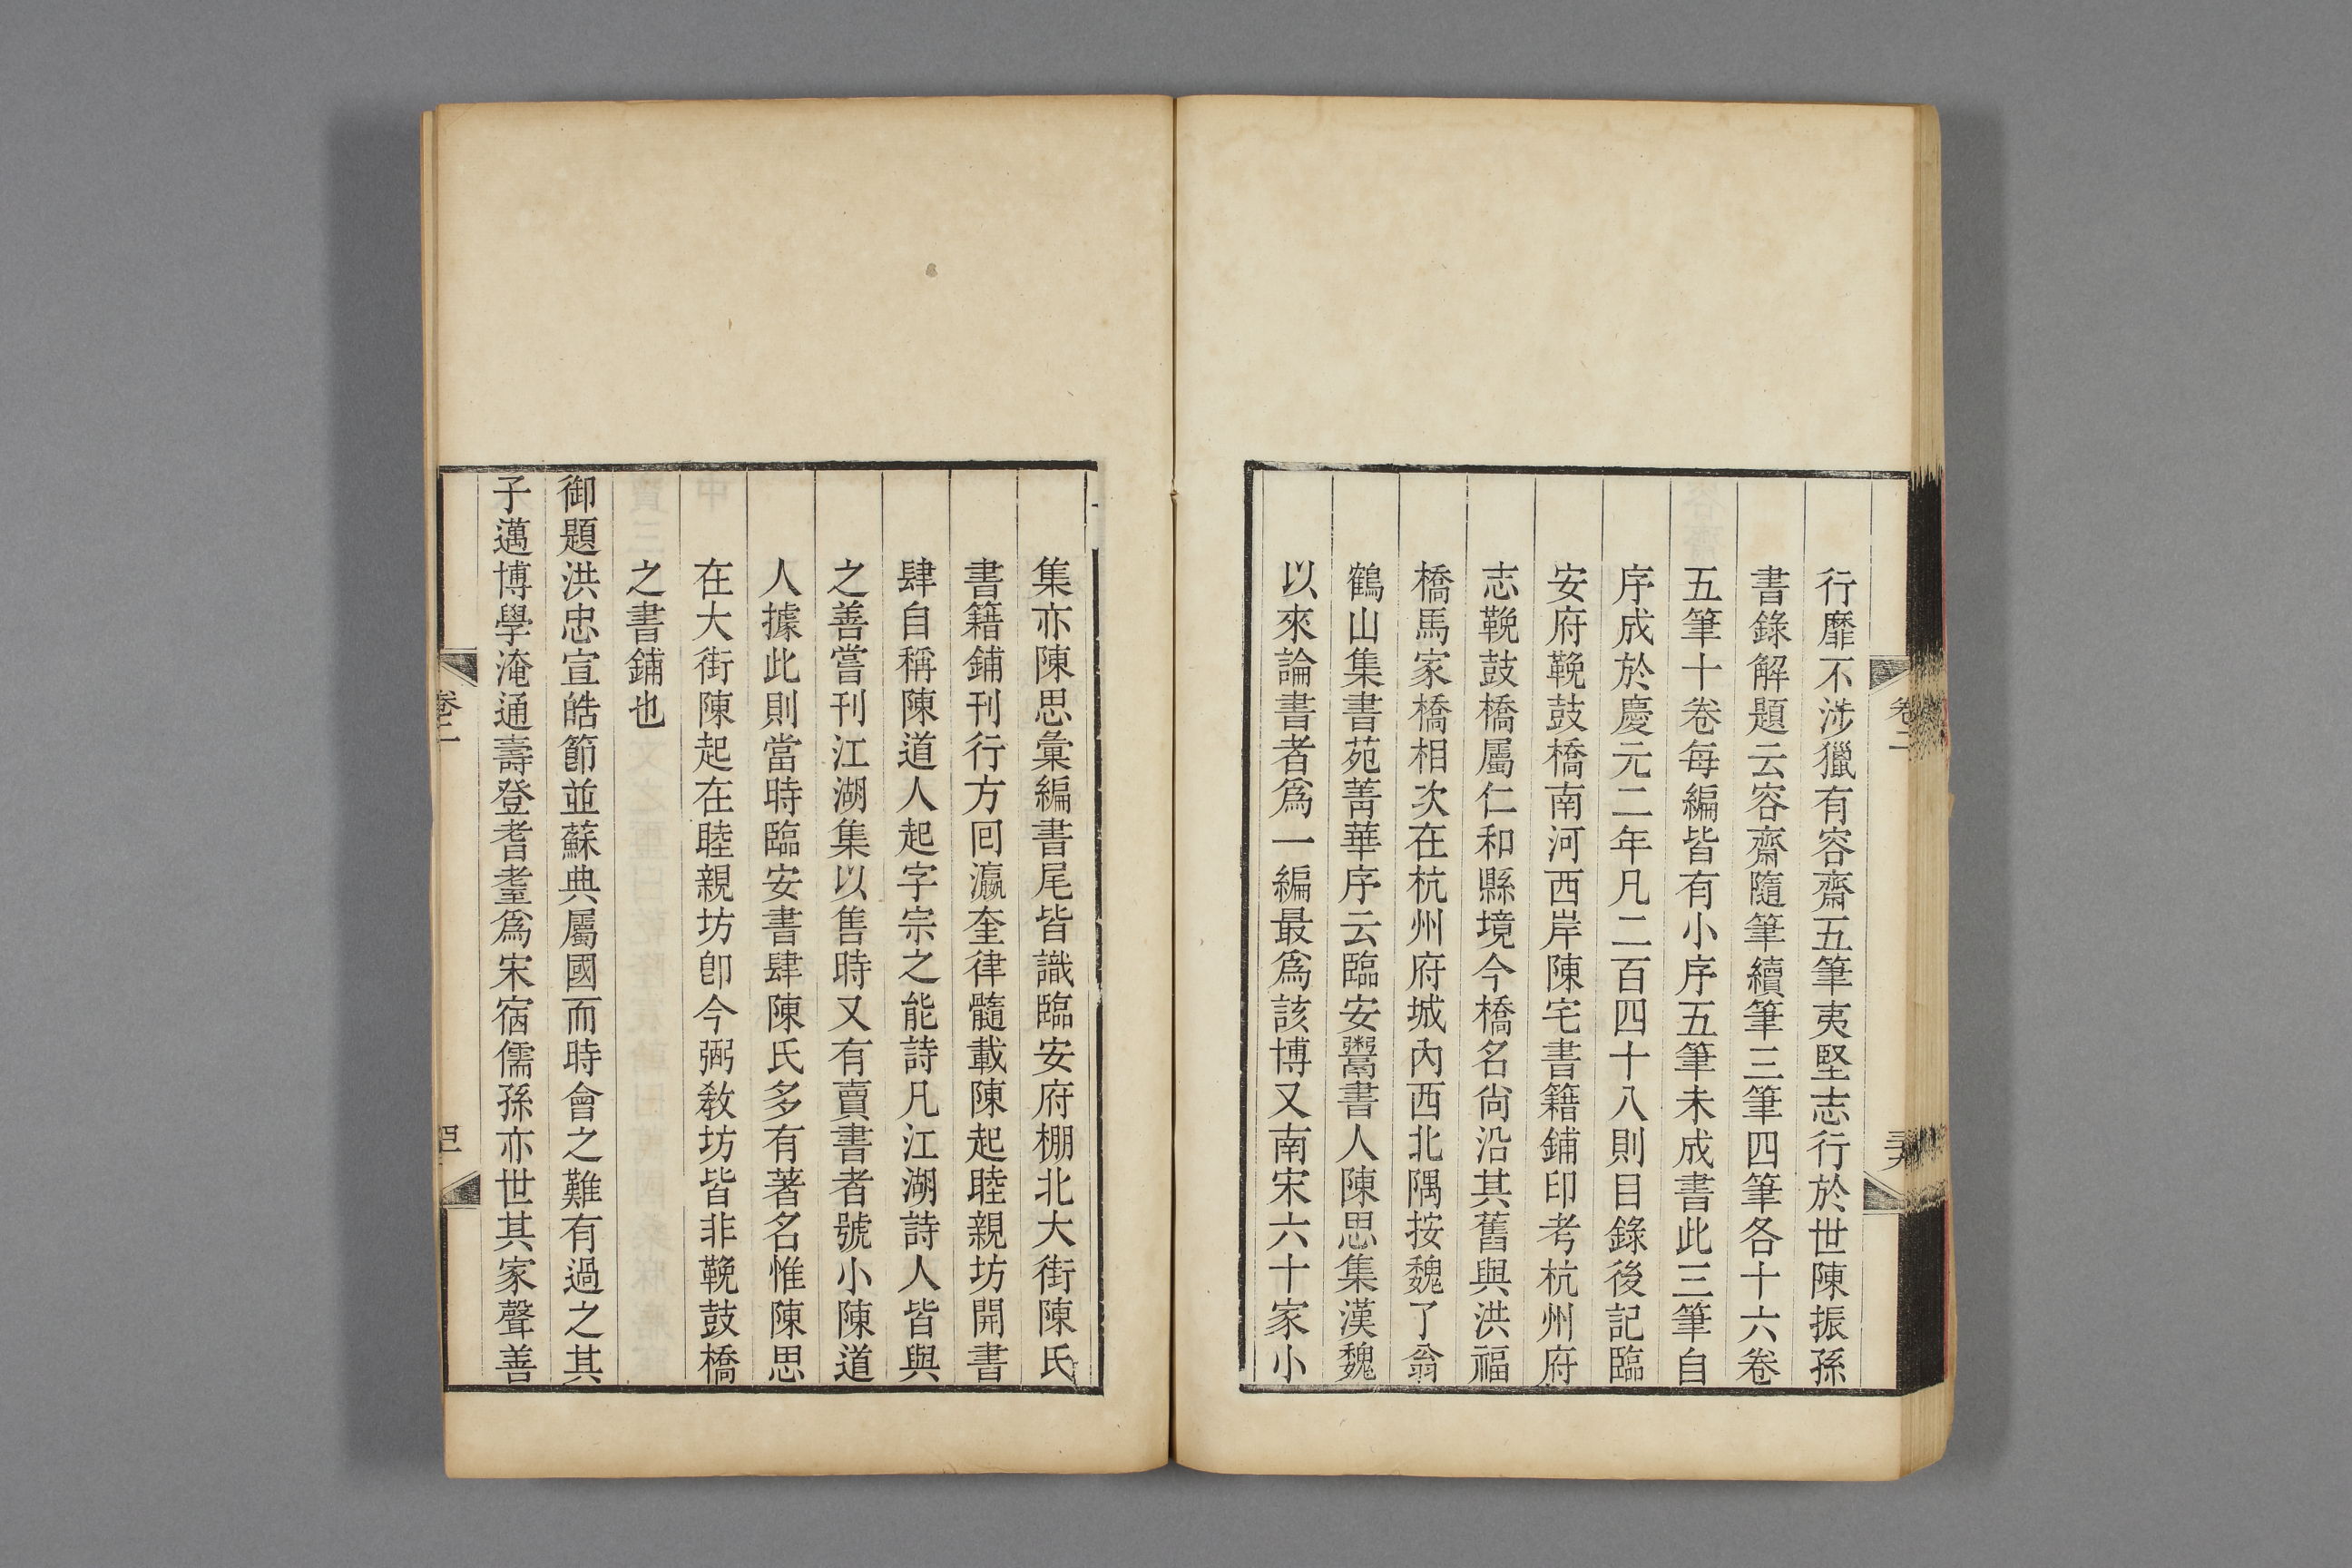 行靡不涉獵有容齋五筆夷堅志行於世陳振孫
書錄解題云容齋隨筆續筆三筆四筆各十六卷
五筆十卷每編皆有小序五筆未成書此三筆自
序成於慶元二年凡二百四十八則目錄後記臨
安府鞔鼓橋南河西岸陳宅書籍鋪印考杭州府
志鞔鼓橋屬仁和縣境今橋名尙沿其舊與洪福
橋馬家橋橋相次在杭州府城內西北隅按魏了翁
鶴山集書苑菁華序云臨安鬻書人陳思集漢魏
以來論書者爲一編最爲該博又南宋六十家小
集亦陳思彙編書尾皆識臨安府棚北大街陳氏
書籍鋪刊行方回瀛奎律髓載陳起睦親坊開書
肆自稱陳道人起字宗之能詩凡江湖詩人皆與
之善嘗刊江湖集以售時又有賣書者號小陳道
人據此則當時臨安書肆陳氏多有著名惟陳思
在大街陳起在睦親坊卽今弼教坊皆非鞔鼓橋
之書鋪也
御題洪忠宣皓節並蘇典屬國而時會之難有過之其
子邁博學淹通壽登耆耋爲宋宿儒孫亦世其家聲善
卷二
卷二